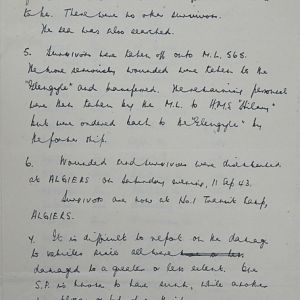 to be. There were no other survivors.
The sea was also searched.
5. Survivors were taken off onto M.L. 568.
The more seriously wounded were taken to the
"Glengyle" and transferred. The remaining personnel
were taken by the M.L. to HMS "Hilary"
but were ordered back to the "Glengyle" by
the former ship.
6. Wounded and survivors were distributed
at ALGIERS on Saturday evening, 11 Sep 43.
Survivors are now at No.1 Transit Camp,
ALGIERS.
7. It is difficult to report on the damage
to vehicles since all were
damaged to a greater or less extent. One
S.P. is known to have sunk, while another